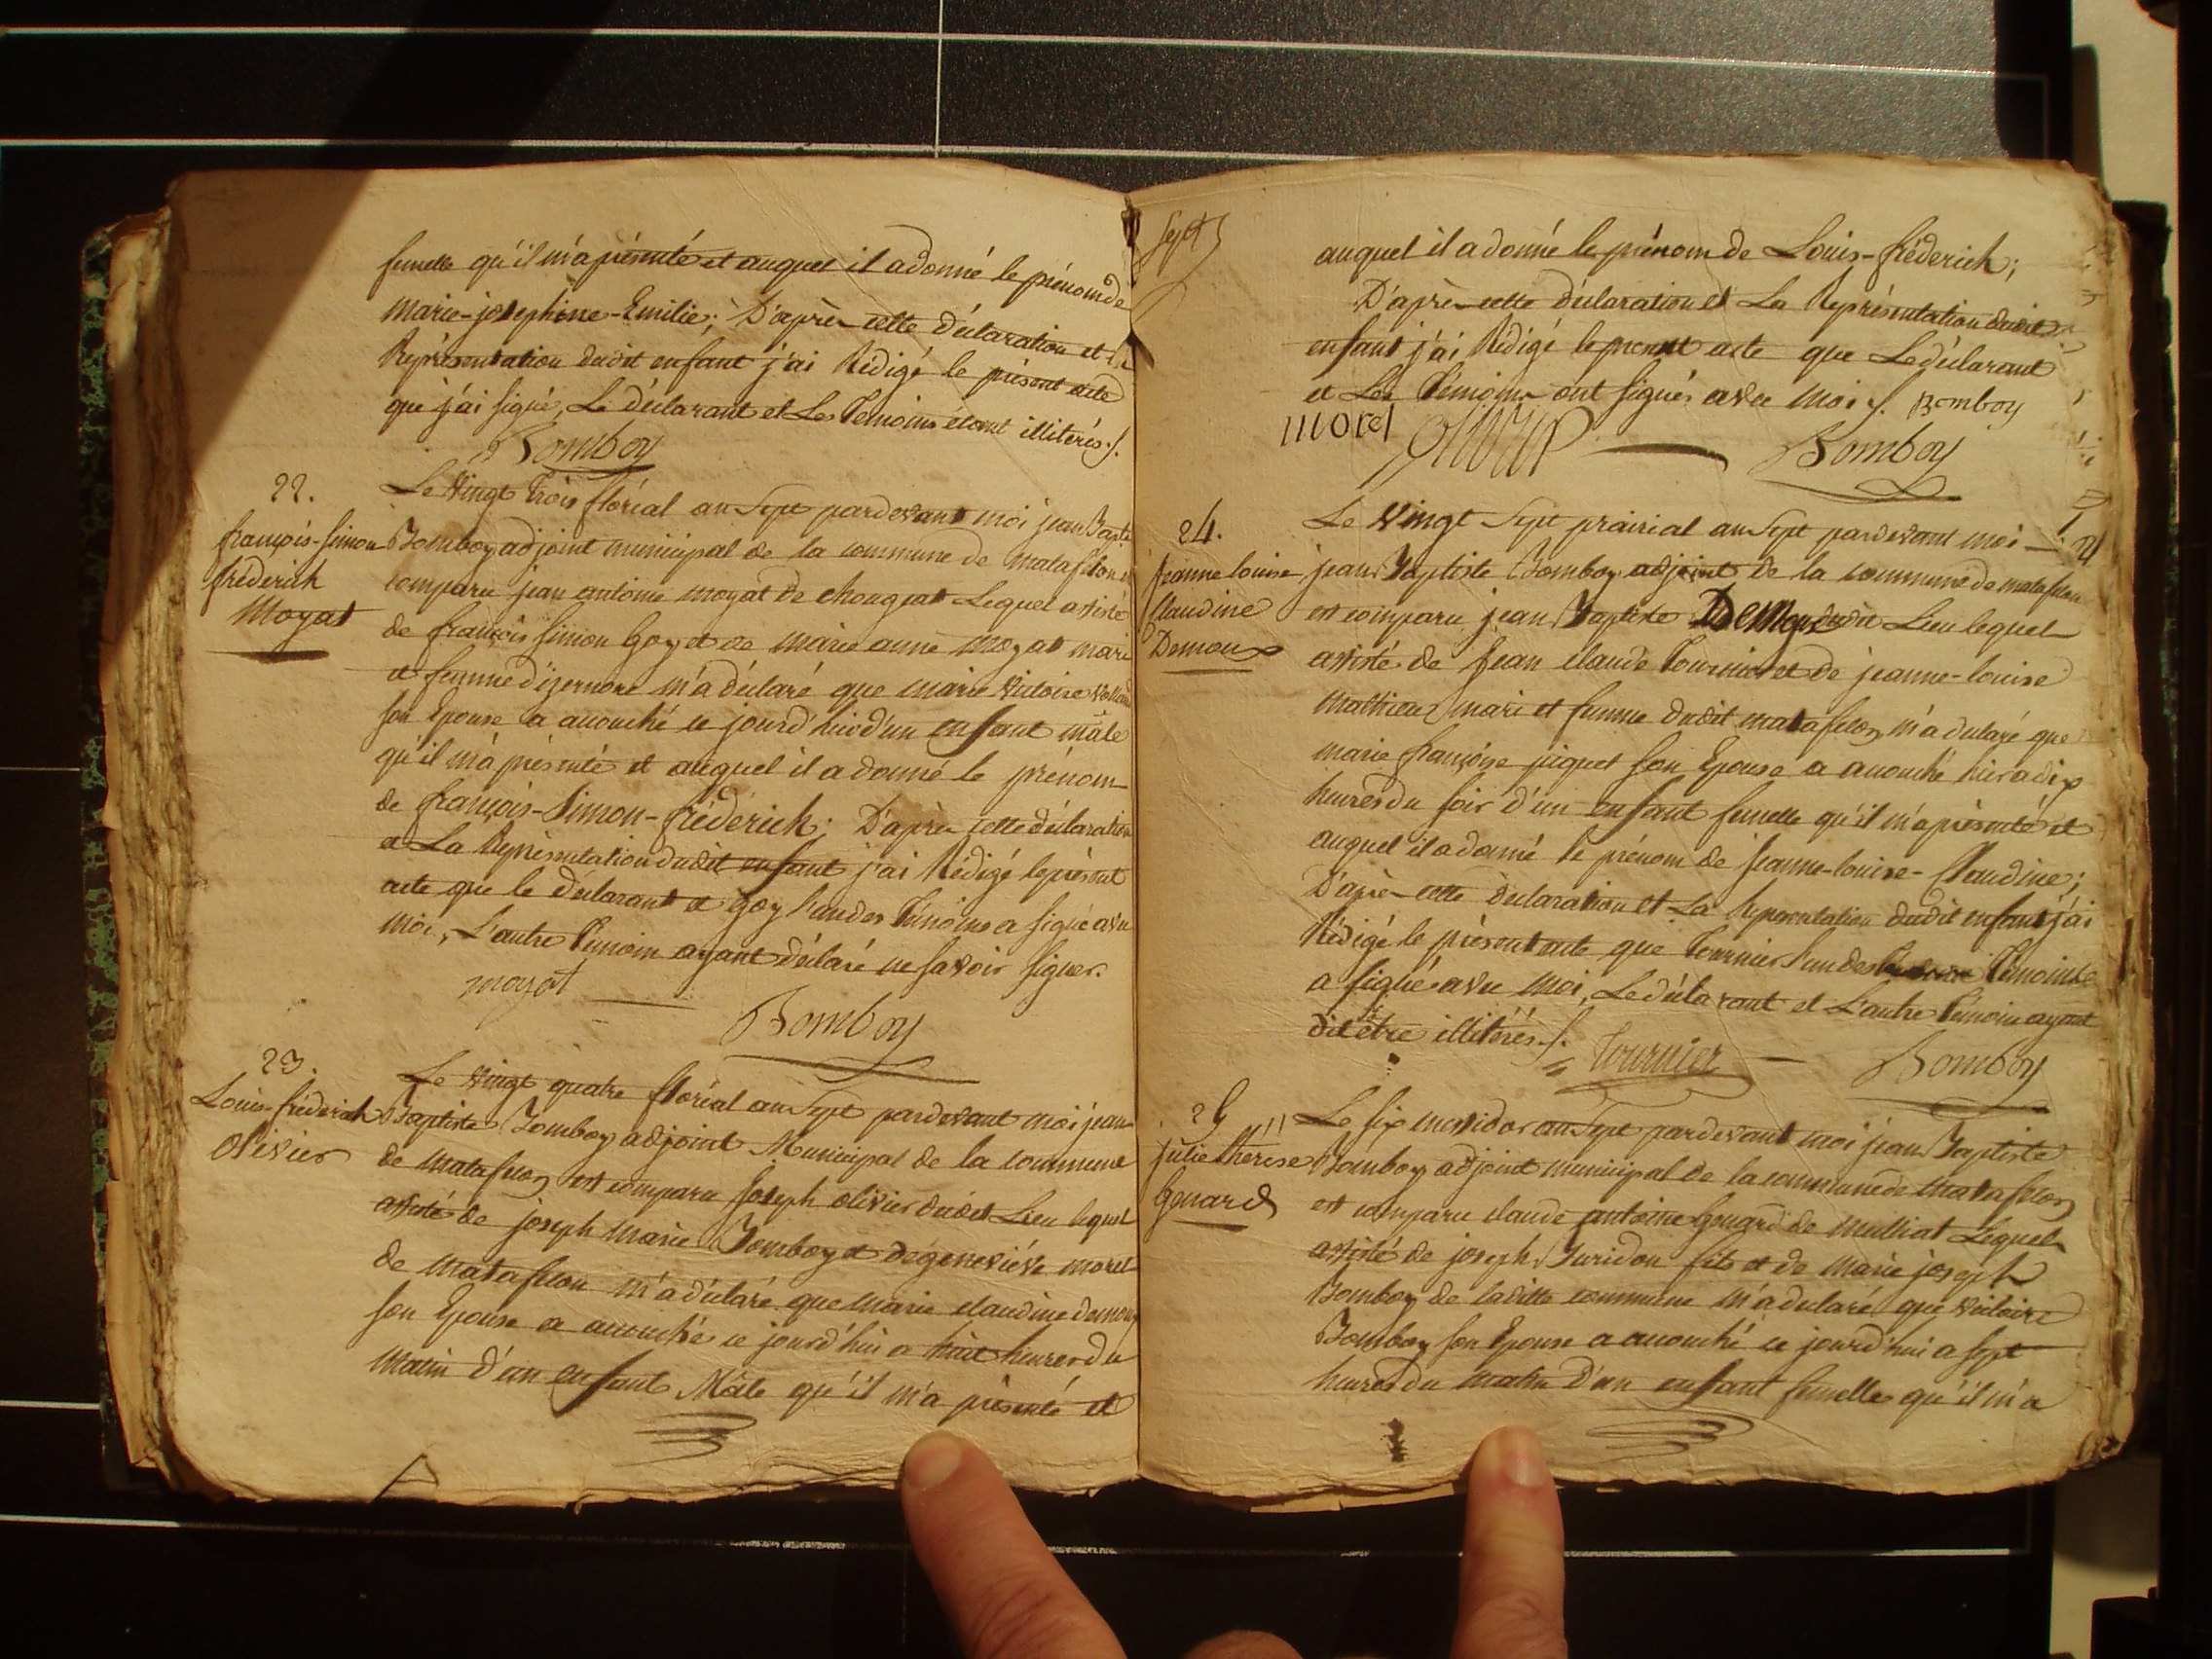 femelle qu'il m'a présenté et auquel il a donné le prénom de
marie-josephine-Emilie; D'après cette déclaration et la
Représentation dudit enfant j'ai Rédigé le présent acte
que j'ai signé, Le déclarant et Les Temoins étant illiterés./.
Bomboy
22.
françois-simon
fréderich
Moyat
Le vingt Trois floréal an sept pardevant moi jean Bapte
Bomboy adjoint municipal de la commune de matafelon est
comparu jean antoine moyat de chougeat Lequel assisté
de françois simon Goy et de marie anne moyat mari
et femme d'izernore m'a déclaré que marie victoire
son Epouse a accouché ce jourd'hui d'un enfant mâle
qu'il m'a présenté et auquel il a donné le prénom
de françois-Simon-fréderich; D'après cette déclaration
et La Représentation dudit enfant j'ai Rédigé le présent
acte que le déclarant et goy l'un des Témoins a signé avec
moi, L'autre Témoin ayant déclaré ne savoir signer.
moyat
Bomboy
23.
Louis-fréderich
olivier
Le vingt quatre floréal an sept pardevant moi jean
Baptiste Bomboy adjoint Municipal de la commune
de matafelon est comparu Joseph olivier dudit Lieu lequel
assisté de joseph marie Bomboy et de geneviève morel
de matafelon m'a déclaré que marie claudine demoux
son Epouse a accouché ce jourd'hui a huit heures du
matin d'un enfant Mâle qu'il m'a présenté et
sept
auquel il a donné le prénom de Louis-fréderich;
D'après cette déclaration et La Représentation dudit
enfant j'ai Rédigé le present acte que Le déclarant
et Les Témoins ont signés avec moi ./. Bomboy
morel olivier
Bomboy
24.
jeanne louise
Claudine
Demoux
Le vingt sept prairial an sept pardevant moi
jean Baptiste Bomboy adjoint de la commune de matafelon
est comparu jean Baptiste Demoux dudit Lieu lequel
assisté de Jean claude Tournier et de jeanne-louise
Mathieu mari et femme dudit matafelon m'a déclaré que
marie françoise piquet son Epouse a accouché hier a dix
heures du soir d'un enfant femelle qu'il m'a présenté et
auquel il a donné le prénom de jeanne-louise-Claudine;
D'après cette déclaration et La Representation dudit enfant j'ai
Rédigé le présent acte que Tournier l'un des Témoins
a signé avec moi, Le déclarant et L'autre Témoin ayant
dit être illitérés ./.
Tournier
Bomboy
25
julie thérèse
Gouard
Le six messidor an sept pardevant moi jean Baptiste
Bomboy adjoint municipal de la commune de matafelon
est comparu claude antoine Gouard de mulliat Lequel
assisté de joseph Juridon fils et de marie joseph
Bomboy de ladite commune m'a déclaré que victoire
Bomboy son Epouse a accouché ce jourd'hui a sept
heures du matin D'un enfant femelle qu'il m'a